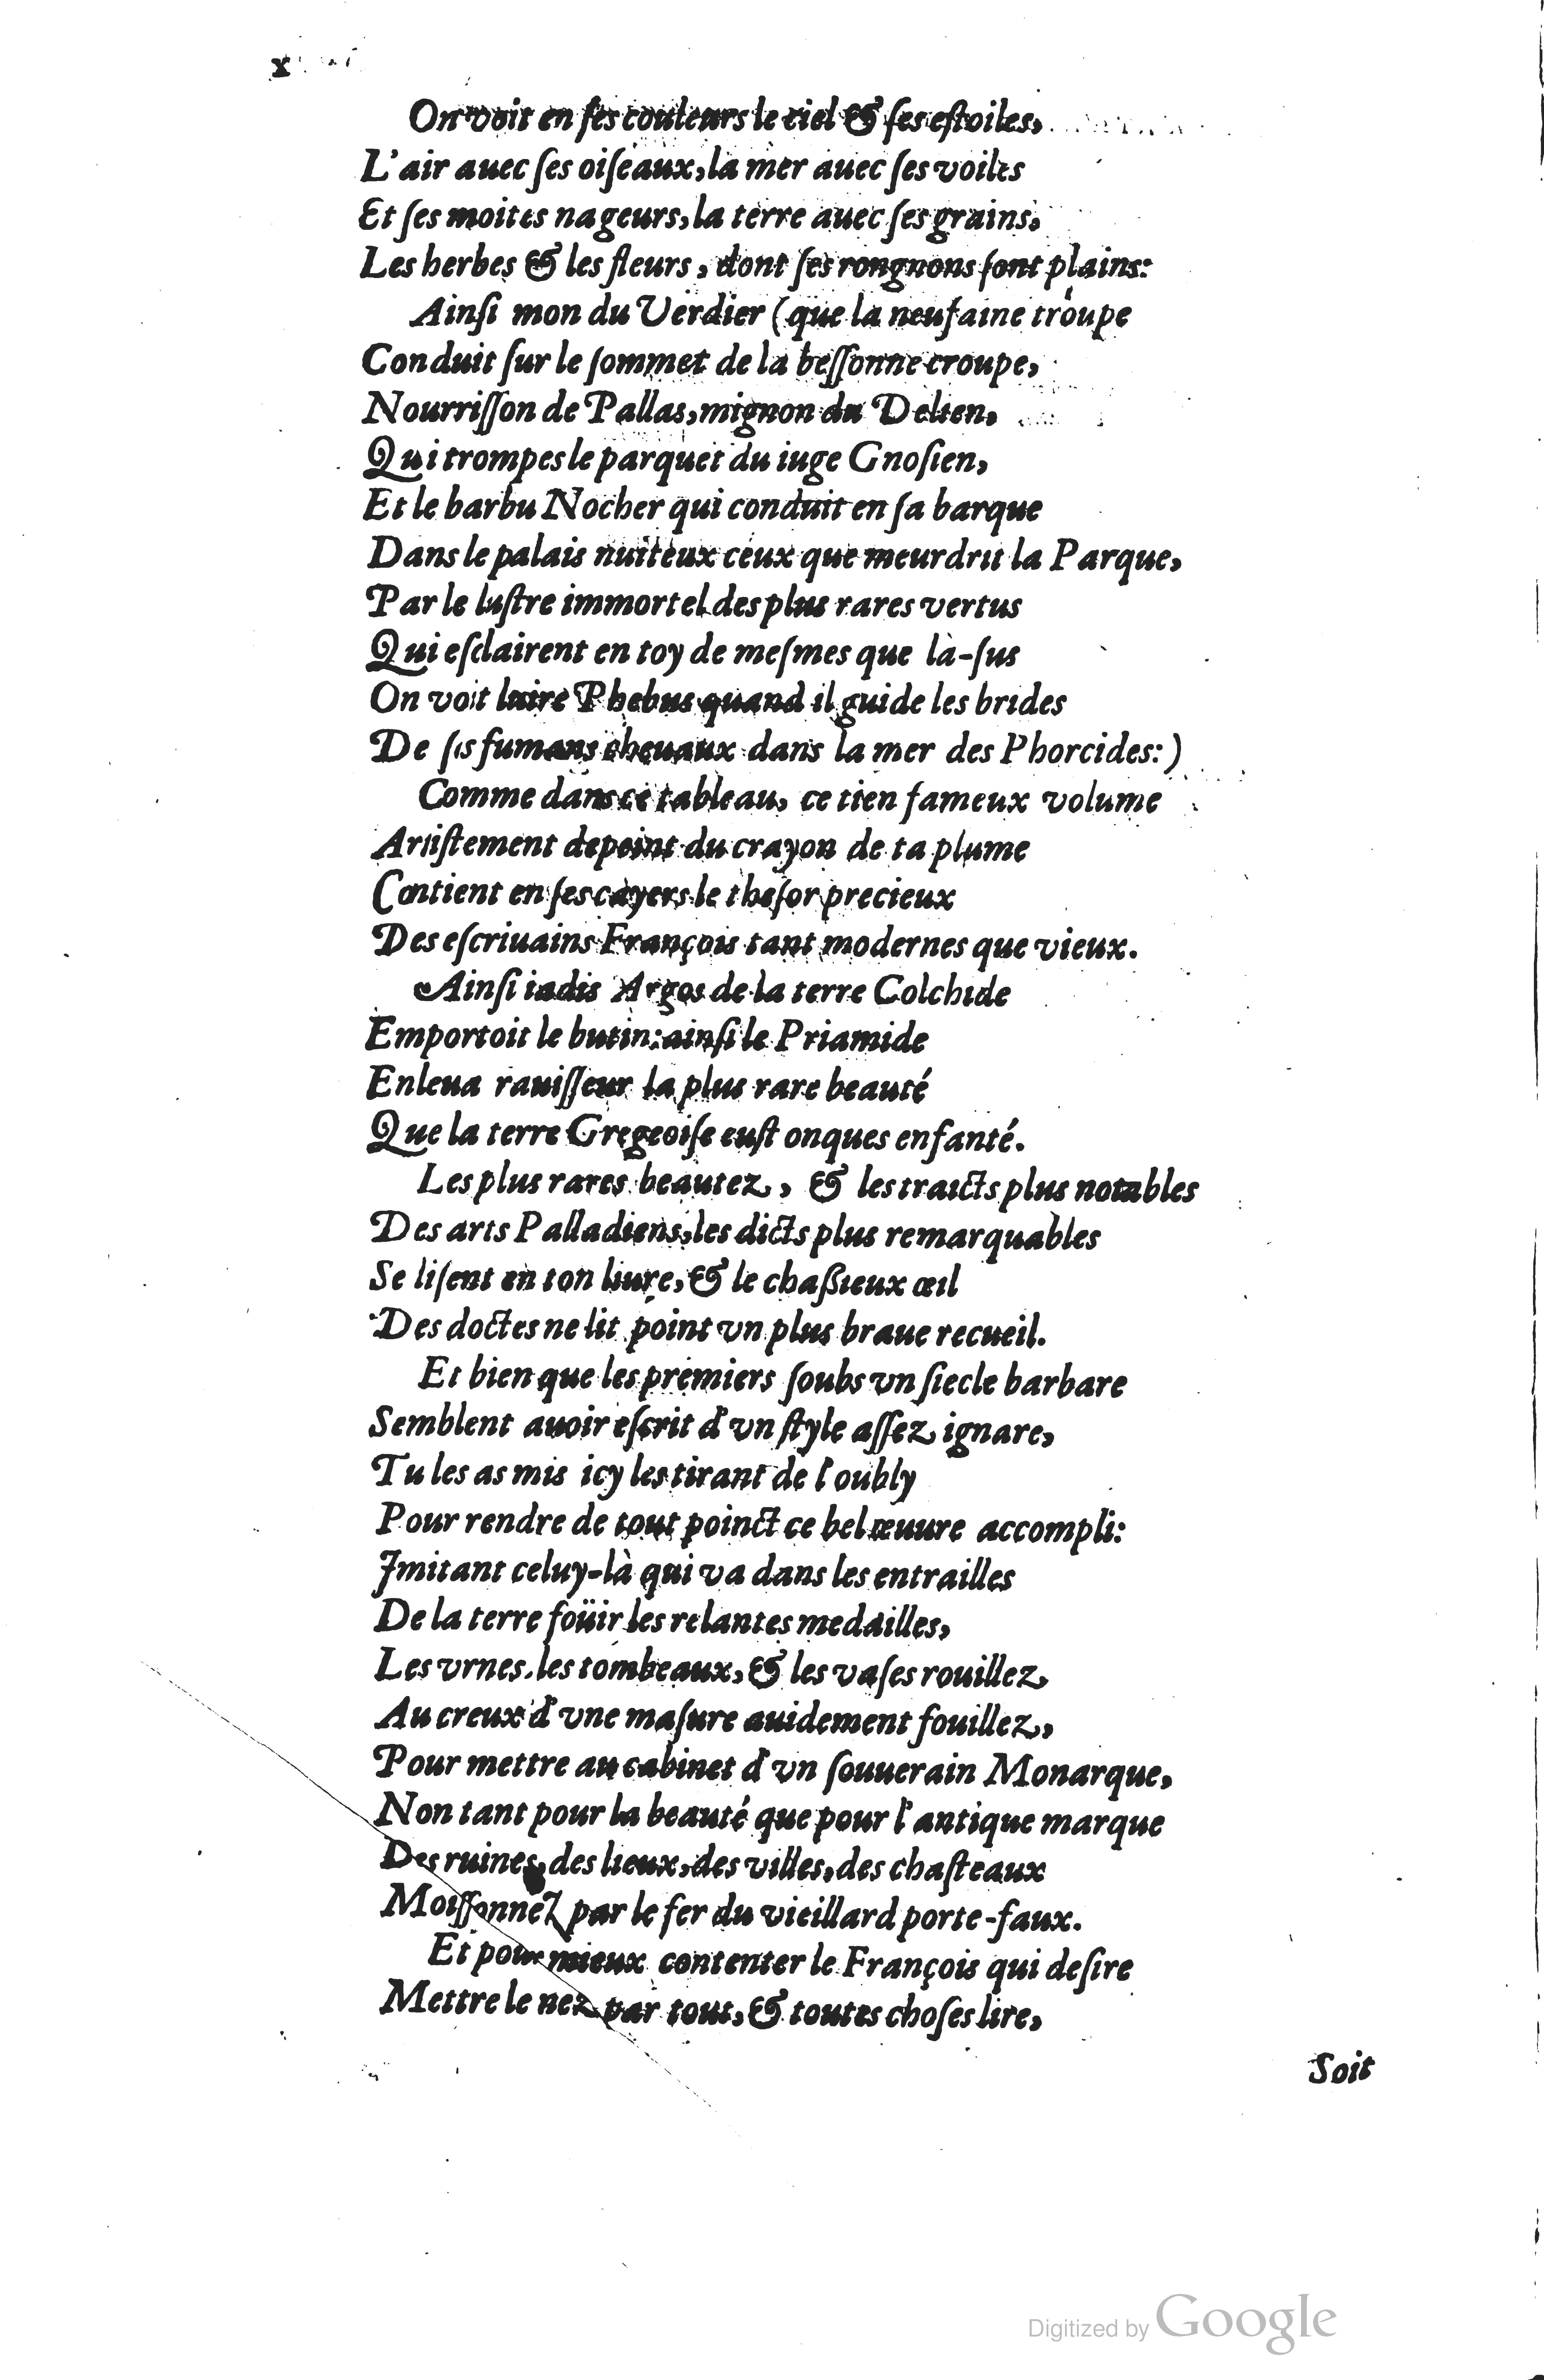 x
On voit en ſes couleurs le ciel & ſes eſtoiles,
L'air auec ſes oiſeaux, la mer auec ſes voiles
Et ſes moites nageurs, la terre auec ſes grains,
Les herbes & les fleurs, dont ſes rongnons ſont plains:
Ainſi mon du Verdier (que la neufaine troupe
Conduit ſur le ſommet de la beſſonne croupe,
Nourriſſon de Pallas, mignon du Delien,
Qui trompes le parquet du iuge Gnoſien,
Et le barbu Nocher qui conduit en ſa barque
Dans le palais nuiteux ceux que meurdrit la Parque,
Par le luſtre immortel des plus rares vertus
Qui eſclairent en toy de meſmes que là-ſus
On voit luire Phebus quand il guide les brides
De ſes fumans cheuaux dans la mer des Phorcides:)
Comme dans ce tableau, ce tien fameux volume
Artiſtement depeint du crayon de ta plume
Contient en ſes cayers le theſor precieux
Des eſcriuains François tant modernes que vieux.
Ainſi iadis Argos de la terre Colchide
Emportoit le butin: ainſi le Priamide
Enleua rauiſſeur la plus rare beauté
Que la terre Gregeoiſe euſt onques enfanté.
Les plus rares beautez, & les traicts plus notables
Des arts Palladiens, les dicts plus remarquables
Se liſent en ton liure, & le chaßieux œil
Des doctes ne lit point vn plus braue recueil.
Et bien que les premiers ſoubs vn ſiecle barbare
Semblent auoir eſcrit d'vn ſtyle aſſez ignare,
Tu les as mis icy les tirant de l'oubly
Pour rendre de tout poinct ce bel œuure accompli:
Imitant celuy-là qui va dans les entrailles
De la terre foüir les relantes medailles,
Les vrnes, les tombeaux, & les vaſes rouillez
Au creux d'vne maſure auidement fouillez,
Pour mettre au cabinet d'vn ſouuerain Monarque,
Non tant pour la beauté que pour l'antique marque
Des ruines, des lieux, des villes, des chaſteaux
Moiſſonnez par le fer du vieillard porte-faux.
Et pour mieux contenter le François qui deſire
Mettre le nez par tout, & toutes choſes lire,
Soit
Digitized by Google